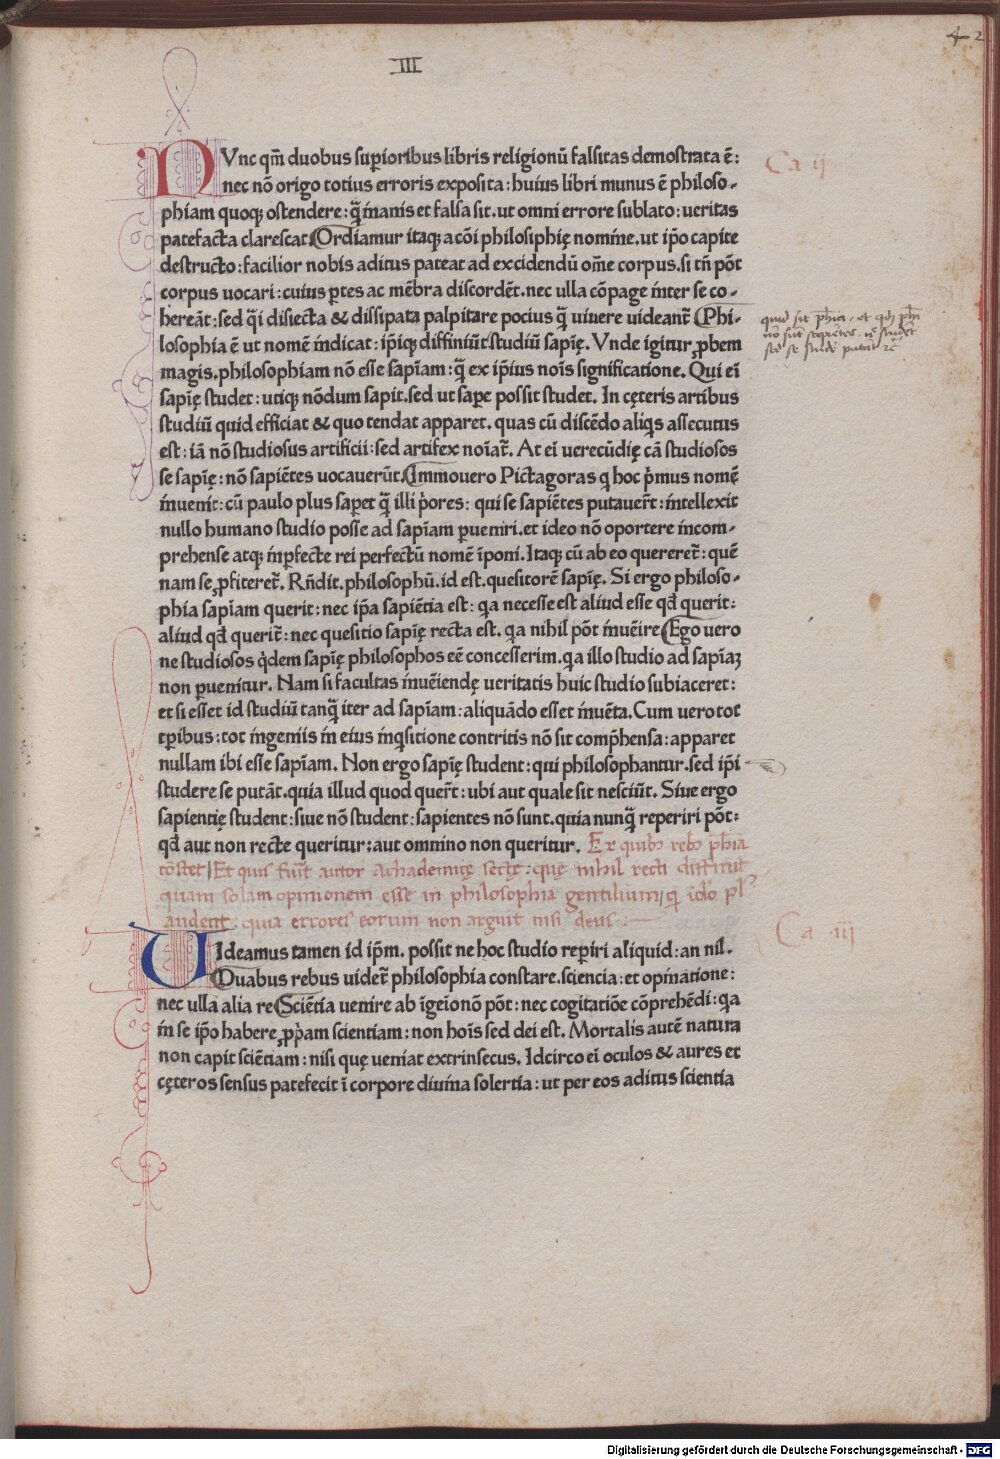 III
42
NVnc qm̄ duobus superioribus libris religionū falsitas demostrata ē:
nec nō origo totius erroris exposita: huius libri munus ē philoso-
phiam quoqꝫ ostendere: q̄ inanis et falsa sit. ut omni errore sublato: ueritas
patefacta clarescat. Ordiamur itaqꝫ a cōi philosiphię nomine. ut ip̄o capite
destructo: facilior nobis aditus pateat ad excidendū om̄e corpus. si tn̄ pōt
corpus uocari: cuius ꝑtes ac mēbra discordēt. nec ulla cōpage inter se co-
hereāt: sed q̄i disiecta & dissipata palpitare pocius q̄ uiuere uideant̄ Phi-
losophia ē ut nomē indicat: ip̄iqꝫ diffiniūt studiū sapīę. Vnde igitur ꝓbem
magis. philosophiam nō esse sapīam: q̄ ex ip̄ius noīs significatione. Qui eī
sapīę studet: utiqꝫ nōdum sapit. sed ut saꝑe possit studet. In cęteris artibus
studiū quid efficiat & quo tendat apparet. quas cū discēdo aliqͥs assecutus
est: iā nō studiosus artificii: sed artifex noīat̄. At eī uerecūdię cā studiosos
se sapīę: nō sapiētes uocauerūt. Immouero Pictagoras q hoc p̍mus nomē
inuenit: cū paulo plus saꝑet q̄ illi p̍ores: qui se sapiētes putauer̄t: intellexit
nullo humano studio posse ad sapīam ꝑueniri. et ideo nō oportere incom-
prehense atqꝫ inꝑfecte rei perfectū nomē īponi. Itaqꝫ cū ab eo quereret̄: quē
nam se ꝓfiteret̄. Rn̄dit. philosophū. id est. quesitorē sapīę. Si ergo philoso-
phia sapīam querit: nec ip̄a sapiētia est: qa necesse est aliud esse qđ querit:
aliud qđ querit̄: nec quesitio sapīę recta est. qa nihil pōt inuēire Ego uero
ne studiosos q̍dem sapīę philosophos eē concesserim. qa illo studio ad sapīaꝫ
non ꝑuenitur. Nam si facultas inuēiendę ueritatis huic studio subiaceret:
et si esset id studiū tanq̄ iter ad sapīam: aliquādo esset inuēta. Cum uero tot
tꝑibus: tot ingeniis in eius inqͥsitione contritis nō sit comp̍hensa: apparet
nullam ibi esse sapīam. Non ergo sapīę student: qui philosophantur. sed ip̄i
studere se putāt. quia illud quod quer̄t: ubi aut quale sit nesciūt. Siue ergo
sapientię student: siue nō student: sapientes nō sunt. quia nunq̄ reperiri pōt:
qđ aut non recte queritur: aut omnino non queritur. Ex quibꝰ rebꝰ ph̄ia
cōstet Et quis fuit autor Achademię sectę: que nihil recti diffiniūt
quam solam opinionem esse in philosophia gentilium
audent: quia errores eorum non arguit nisi deus
Videamus tamen id ip̄m. possit ne hoc studio reꝑiri aliquid: an nil.
Duabus rebus uidet̄ philosophia constare. sciencia: et opinatione:
nec ulla alia re Sciētia uenire ab īgeionō pōt: nec cogitatiōe cōprehēdi: qa
in se ip̄o habere ꝓp̍am scientiam: non hoīs sed dei est. Mortalis autē natura
non capit sciētiam: nisi quę ueniat extrinsecus. Idcirco ei oculos & aures et
cęteros sensus patefecit ī corpore diuina solertia: ut per eos aditus scientia
Ca ij
quid sit ph̄ia. et qđ ph̄i
Ca iii
Digitalisierung gefördert durch die Deutsche Forschungsgemeinschaft - DFG